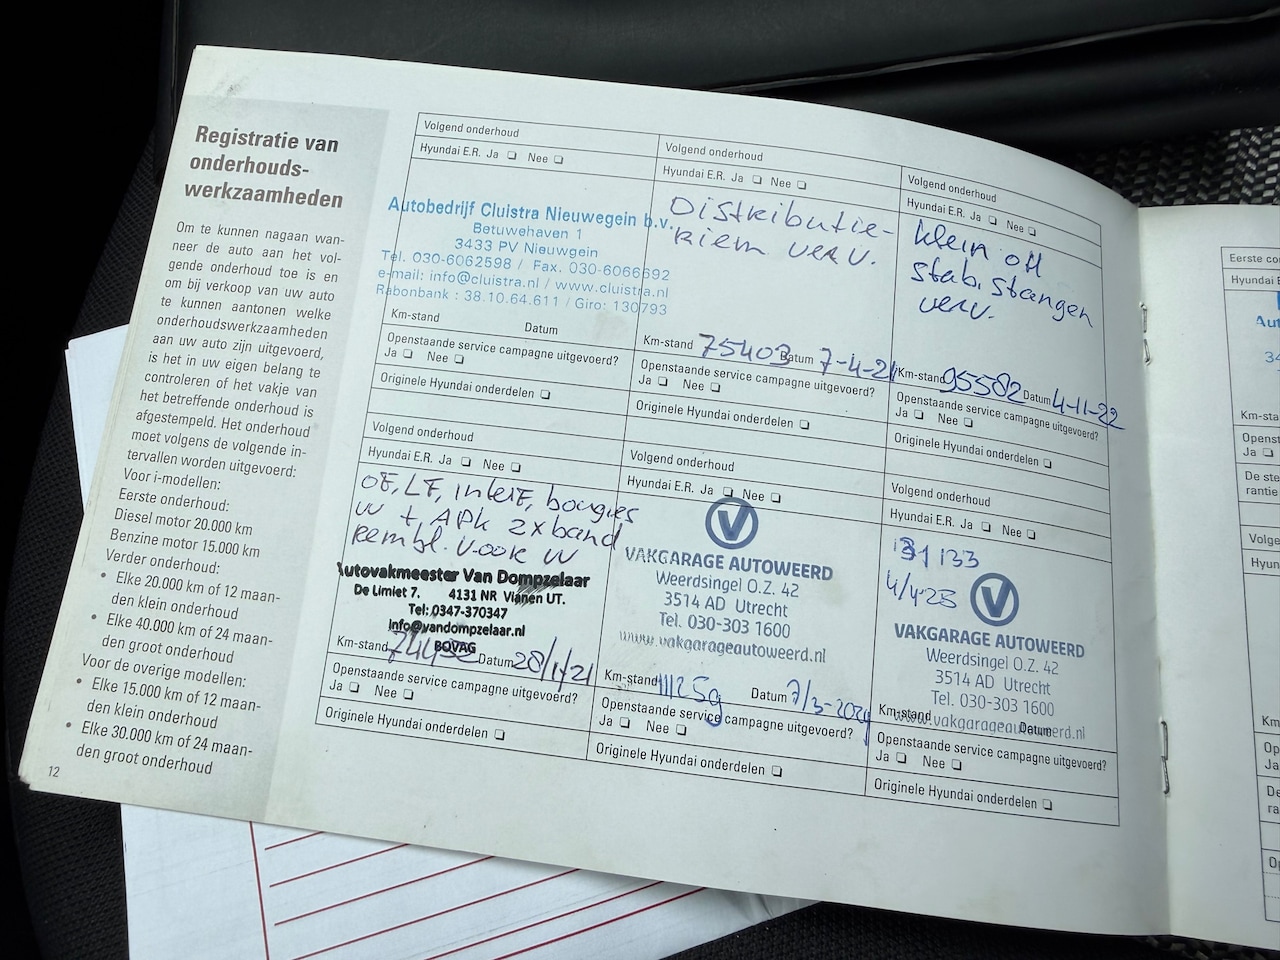 Registratie van
onderhouds-
werkzaamheden
Om te kunnen nagaan wan-
neer de auto aan het vol-
gende onderhoud toe is en
om bij verkoop van uw auto
te kunnen aantonen welke
onderhoudswerkzaamheden
aan uw auto zijn uitgevoerd,
is het in uw eigen belang te
controleren of het vakje van
het betreffende onderhoud is
afgestempeld. Het onderhoud
moet volgens de volgende in-
tervallen worden uitgevoerd:
Voor i-modellen:
Eerste onderhoud:
Diesel motor 20.000 km
Benzine motor 15.000 km
Verder onderhoud:
• Elke 20.000 km of 12 maan-
den klein onderhoud
• Elke 40.000 km of 24 maan-
den groot onderhoud
Voor de overige modellen:
• Elke 15.000 km of 12 maan-
den klein onderhoud
• Elke 30.000 km of 24 maan-
den groot onderhoud
12
Volgend onderhoud
Hyundai E.R. Ja ❏ Nee ❏
Autobedrijf Cluistra Nieuwegein b.v.
Betuwehaven 1
3433 PV Nieuwgein
Tel. 030-6062598 / Fax. 030-6066692
e-mail: info@cluistra.nl / www.cluistra.nl
Rabonbank : 38.10.64.611 / Giro: 130793
Km-stand Datum
Openstaande service campagne uitgevoerd?
Ja ❏ Nee ❏
Originele Hyundai onderdelen ❏
Volgend onderhoud
Hyundai E.R. Ja ❏ Nee ❏
Distributie-
riem verv.
Km-stand 75403 Datum 7-4-21
Openstaande service campagne uitgevoerd?
Ja ❏ Nee ❏
Originele Hyundai onderdelen ❏
Volgend onderhoud
Hyundai E.R. Ja ❏ Nee ❏
klein oH
stab. stangen
verv.
Km-stand 95582 Datum 4-11-22
Openstaande service campagne uitgevoerd?
Ja ❏ Nee ❏
Originele Hyundai onderdelen ❏
Volgend onderhoud
Hyundai E.R. Ja ❏ Nee ❏
OF, LF, interF, bougies
VV + APK 2x band
rembl. voor VV
Autovakmeester Van Dompzelaar
De Limiet 7. 4131 NR Vianen UT.
Tel: 0347-370347
info@vandompzelaar.nl
BOVAG
Km-stand Datum 28/1/21
Openstaande service campagne uitgevoerd?
Ja ❏ Nee ❏
Originele Hyundai onderdelen ❏
Volgend onderhoud
Hyundai E.R. Ja ❏ Nee ❏
V
VAKGARAGE AUTOWEERD
Weerdsingel O.Z. 42
3514 AD Utrecht
Tel. 030-303 1600
www.vakgarageautoweerd.nl
Km-stand 111259 Datum 7/3-2024
Openstaande service campagne uitgevoerd?
Ja ❏ Nee ❏
Originele Hyundai onderdelen ❏
Volgend onderhoud
Hyundai E.R. Ja ❏ Nee ❏
131133
4/4-25
V
VAKGARAGE AUTOWEERD
Weerdsingel O.Z. 42
3514 AD Utrecht
Tel. 030-303 1600
www.vakgarageautoweerd.nl
Km-stand Datum
Openstaande service campagne uitgevoerd?
Ja ❏ Nee ❏
Originele Hyundai onderdelen ❏
Eerste
Hyundai
Aut
34
Km-sta
Openst
Ja ❏
De ste
rantie
Volge
Hyun
Km
Op
Ja
De
ra
Op